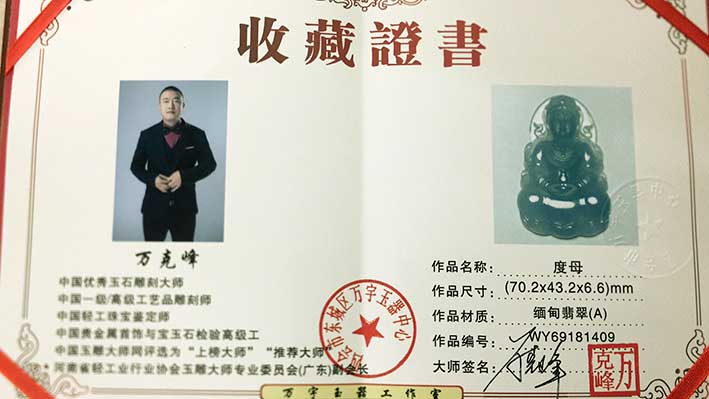 收藏證書
万克峰
中国优秀玉石雕刻大师
中国一级/高级工艺品雕刻师
中国轻工珠宝鉴定师
中国贵金属首饰与宝玉石检验高级工
中国玉雕大师网评选为“上榜大师” “推荐大师”
* 河南省轻工业行业协会玉雕大师专业委员会(广东)副会长
四会市东城区万宇玉器中心
作品名称: 度母
作品尺寸: (70.2x43.2x6.6)mm
作品材质: 缅甸翡翠(A)
作品编号: WY69181409
大师签名:
万克峰
万宇玉器工作室